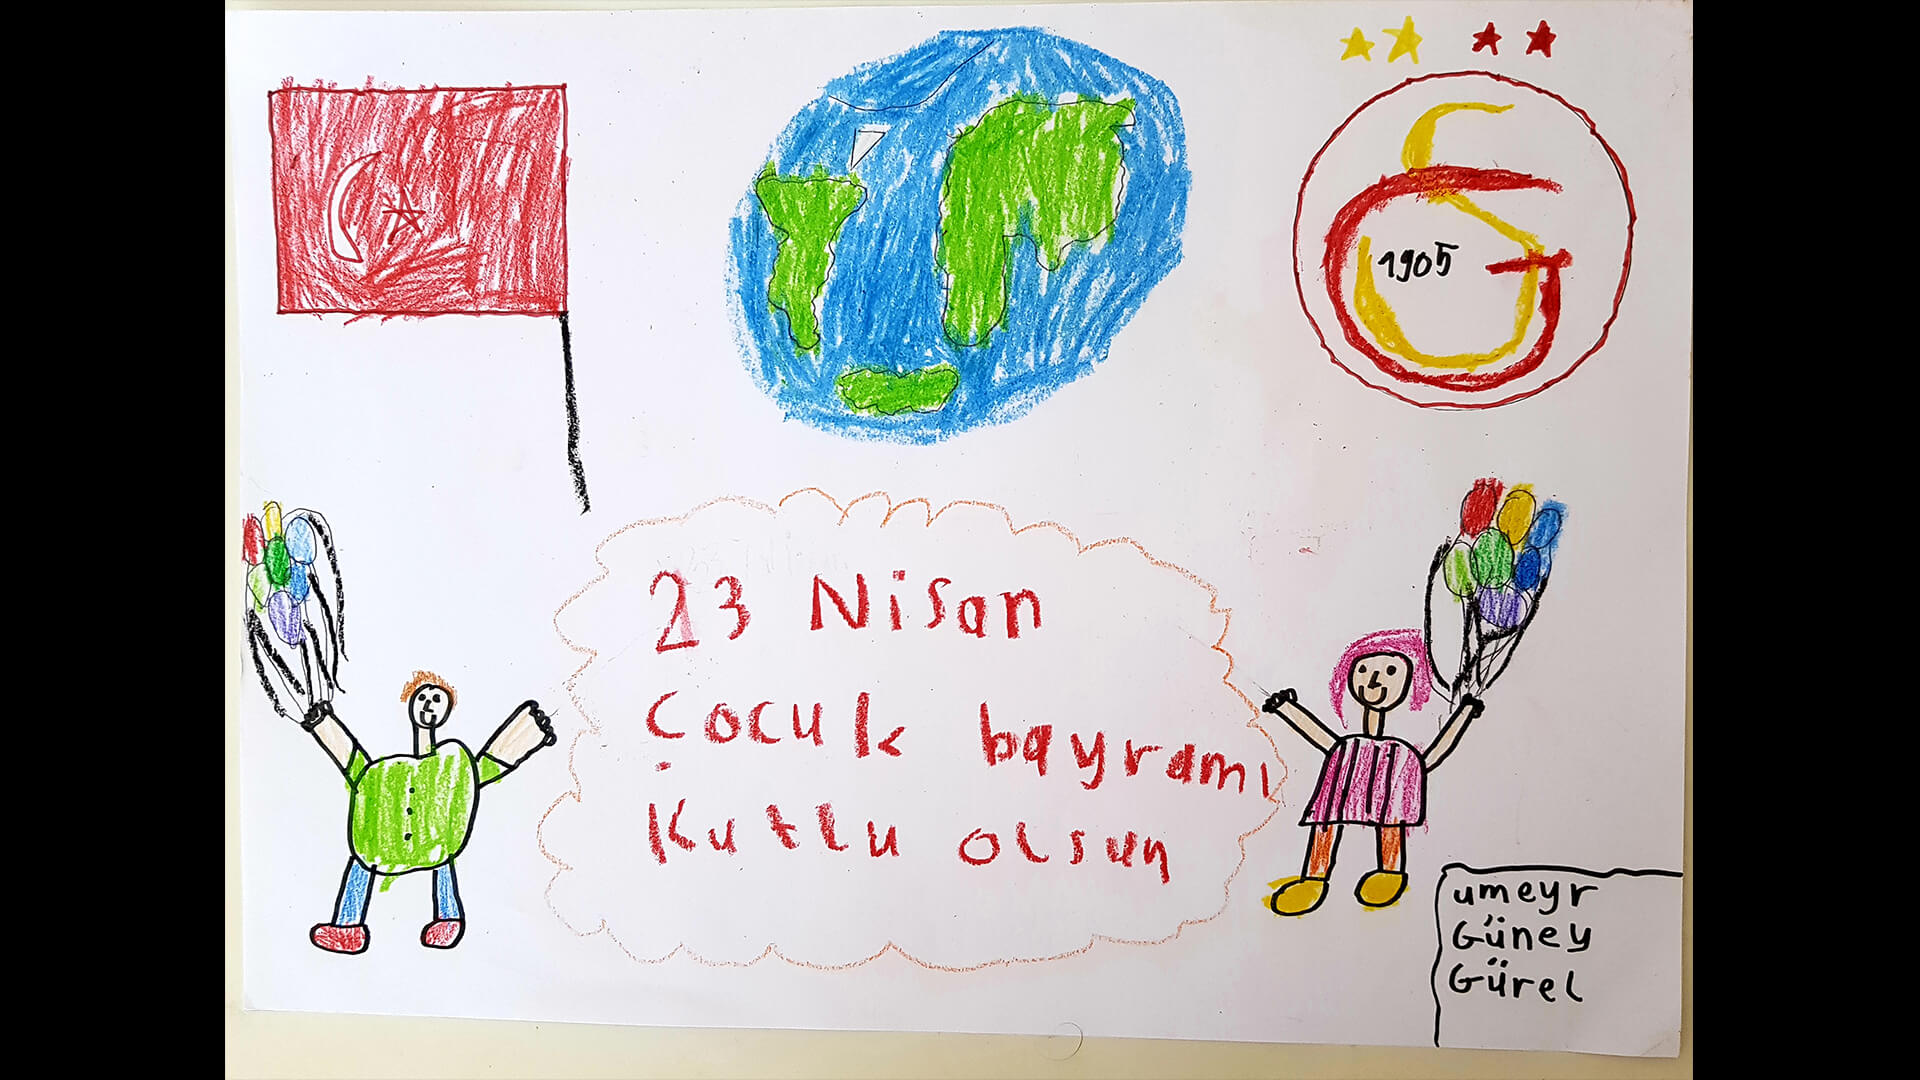 1905
23 Nisan
Çocuk bayramı
Kutlu olsun
umeyr
Güney
Gürel